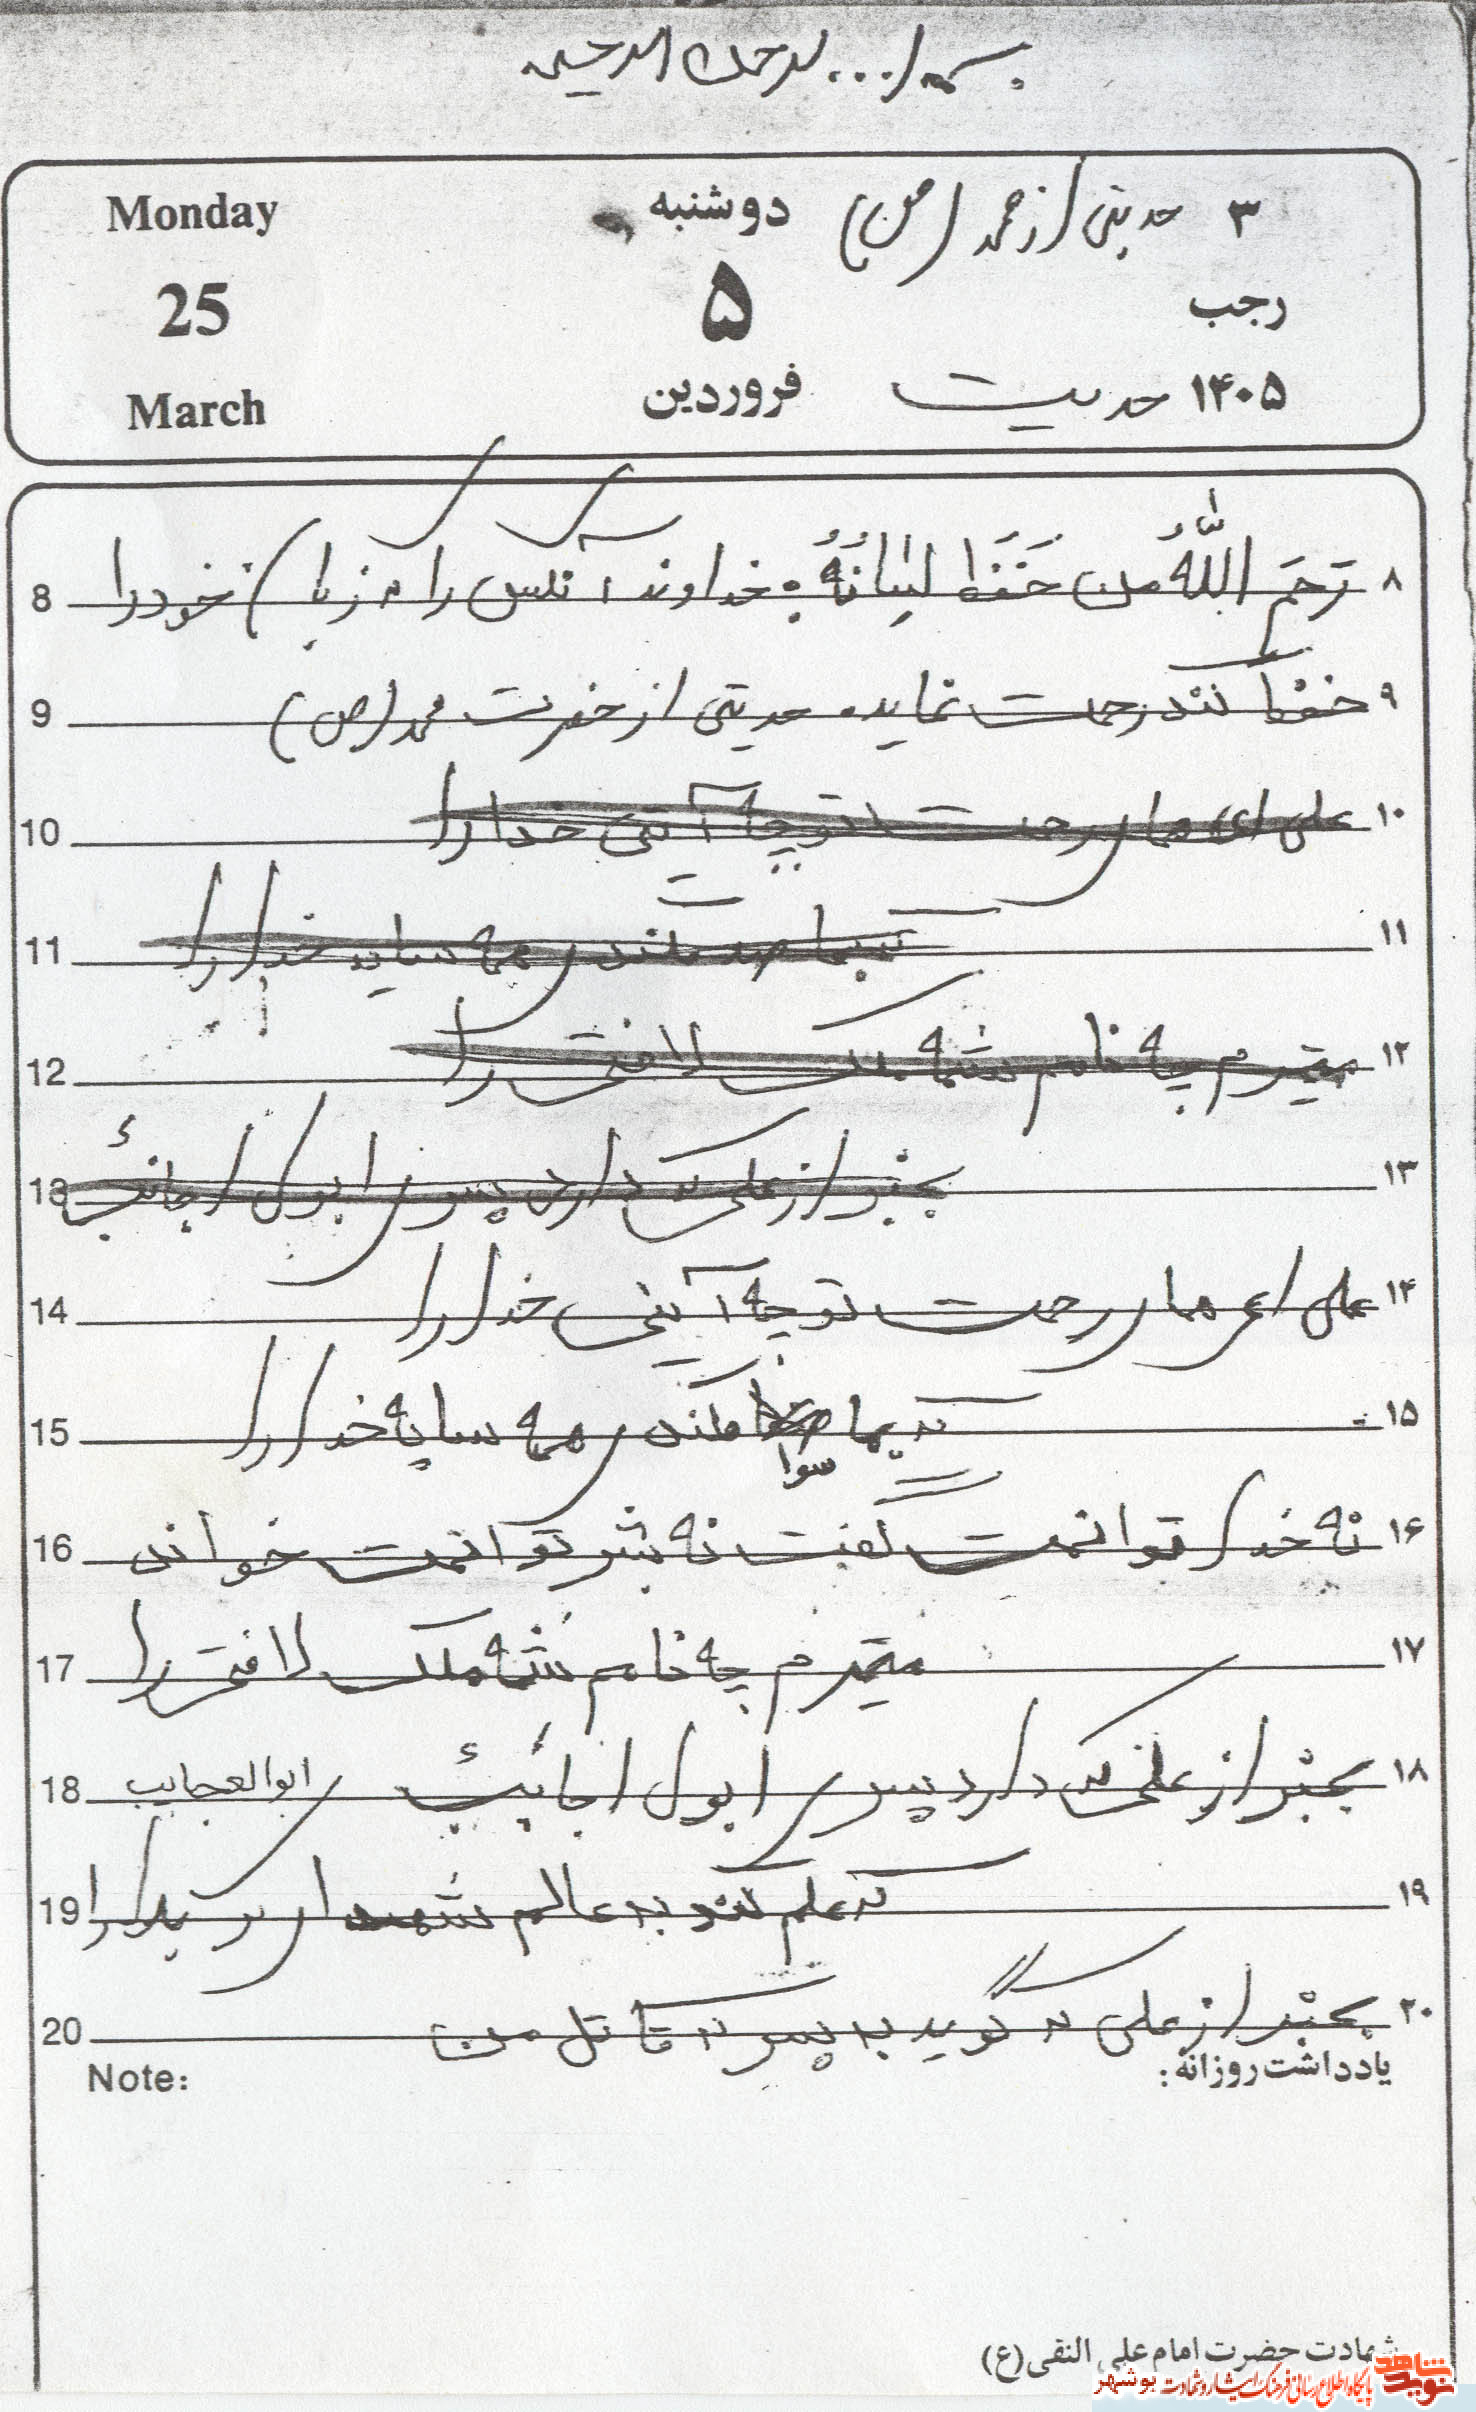 بسمه ا... لرحمن الرحیم
۳ حدیثی از محمد (ص) دوشنبه Monday
رجب ۵ 25
۱۴۰۵ حدیث فروردین March
۸ رَحِمَ اللّٰهُ من حَفَظَ لِسٰانَهُ: خداوند آنکس را که زبان خود را 8
۹ حفظ کند رحمت نماید. حدیثی از حضرت محمد (ص) 9
۱۰ علی ای همای رحمت تو چه آیتی خدا را 10
۱۱ که بما فکندی همه سایه خدا را 11
۱۲ متحیرم چه نامم شه ملک لا فتی را 12
۱۳ بجز از علی که دارد پسری ابول اجائب 13
۱۴ علی ای همای رحمت تو چه آیتی خدا را 14
۱۵ که بما سوا فکندی همه سایه خدا را 15
۱۶ نه خدا توانمت گفت نه بشر توانمت خواند 16
۱۷ متحیرم چه نامم شه ملک لا فتی را 17
۱۸ بجز از علی که دارد پسری ابول اجائب ابوالعجایب 18
۱۹ که علم کند به عالم شهدای کربلا را 19
۲۰ بجز از علی که گوید به پسر که قاتل من 20
یادداشت روزانه: Note:
شهادت حضرت امام علی النقی (ع)
نوید شاهد پایگاه اطلاع رسانی فرهنگ ایثار و شهادت بوشهر